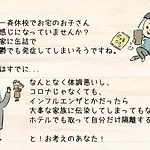 一斉休校でお宅のお子さん
感じになっていませんか？
家に缶詰で
鬱でも発症してしまいそうですね。
はすでに...
なんとなく体調悪いし、
コロナじゃなくても、
インフルエンザとかだったら
大事な家族に伝染してしまってもな
ホテルでも取って自分だけ隔離する
と！お考えのあなた！